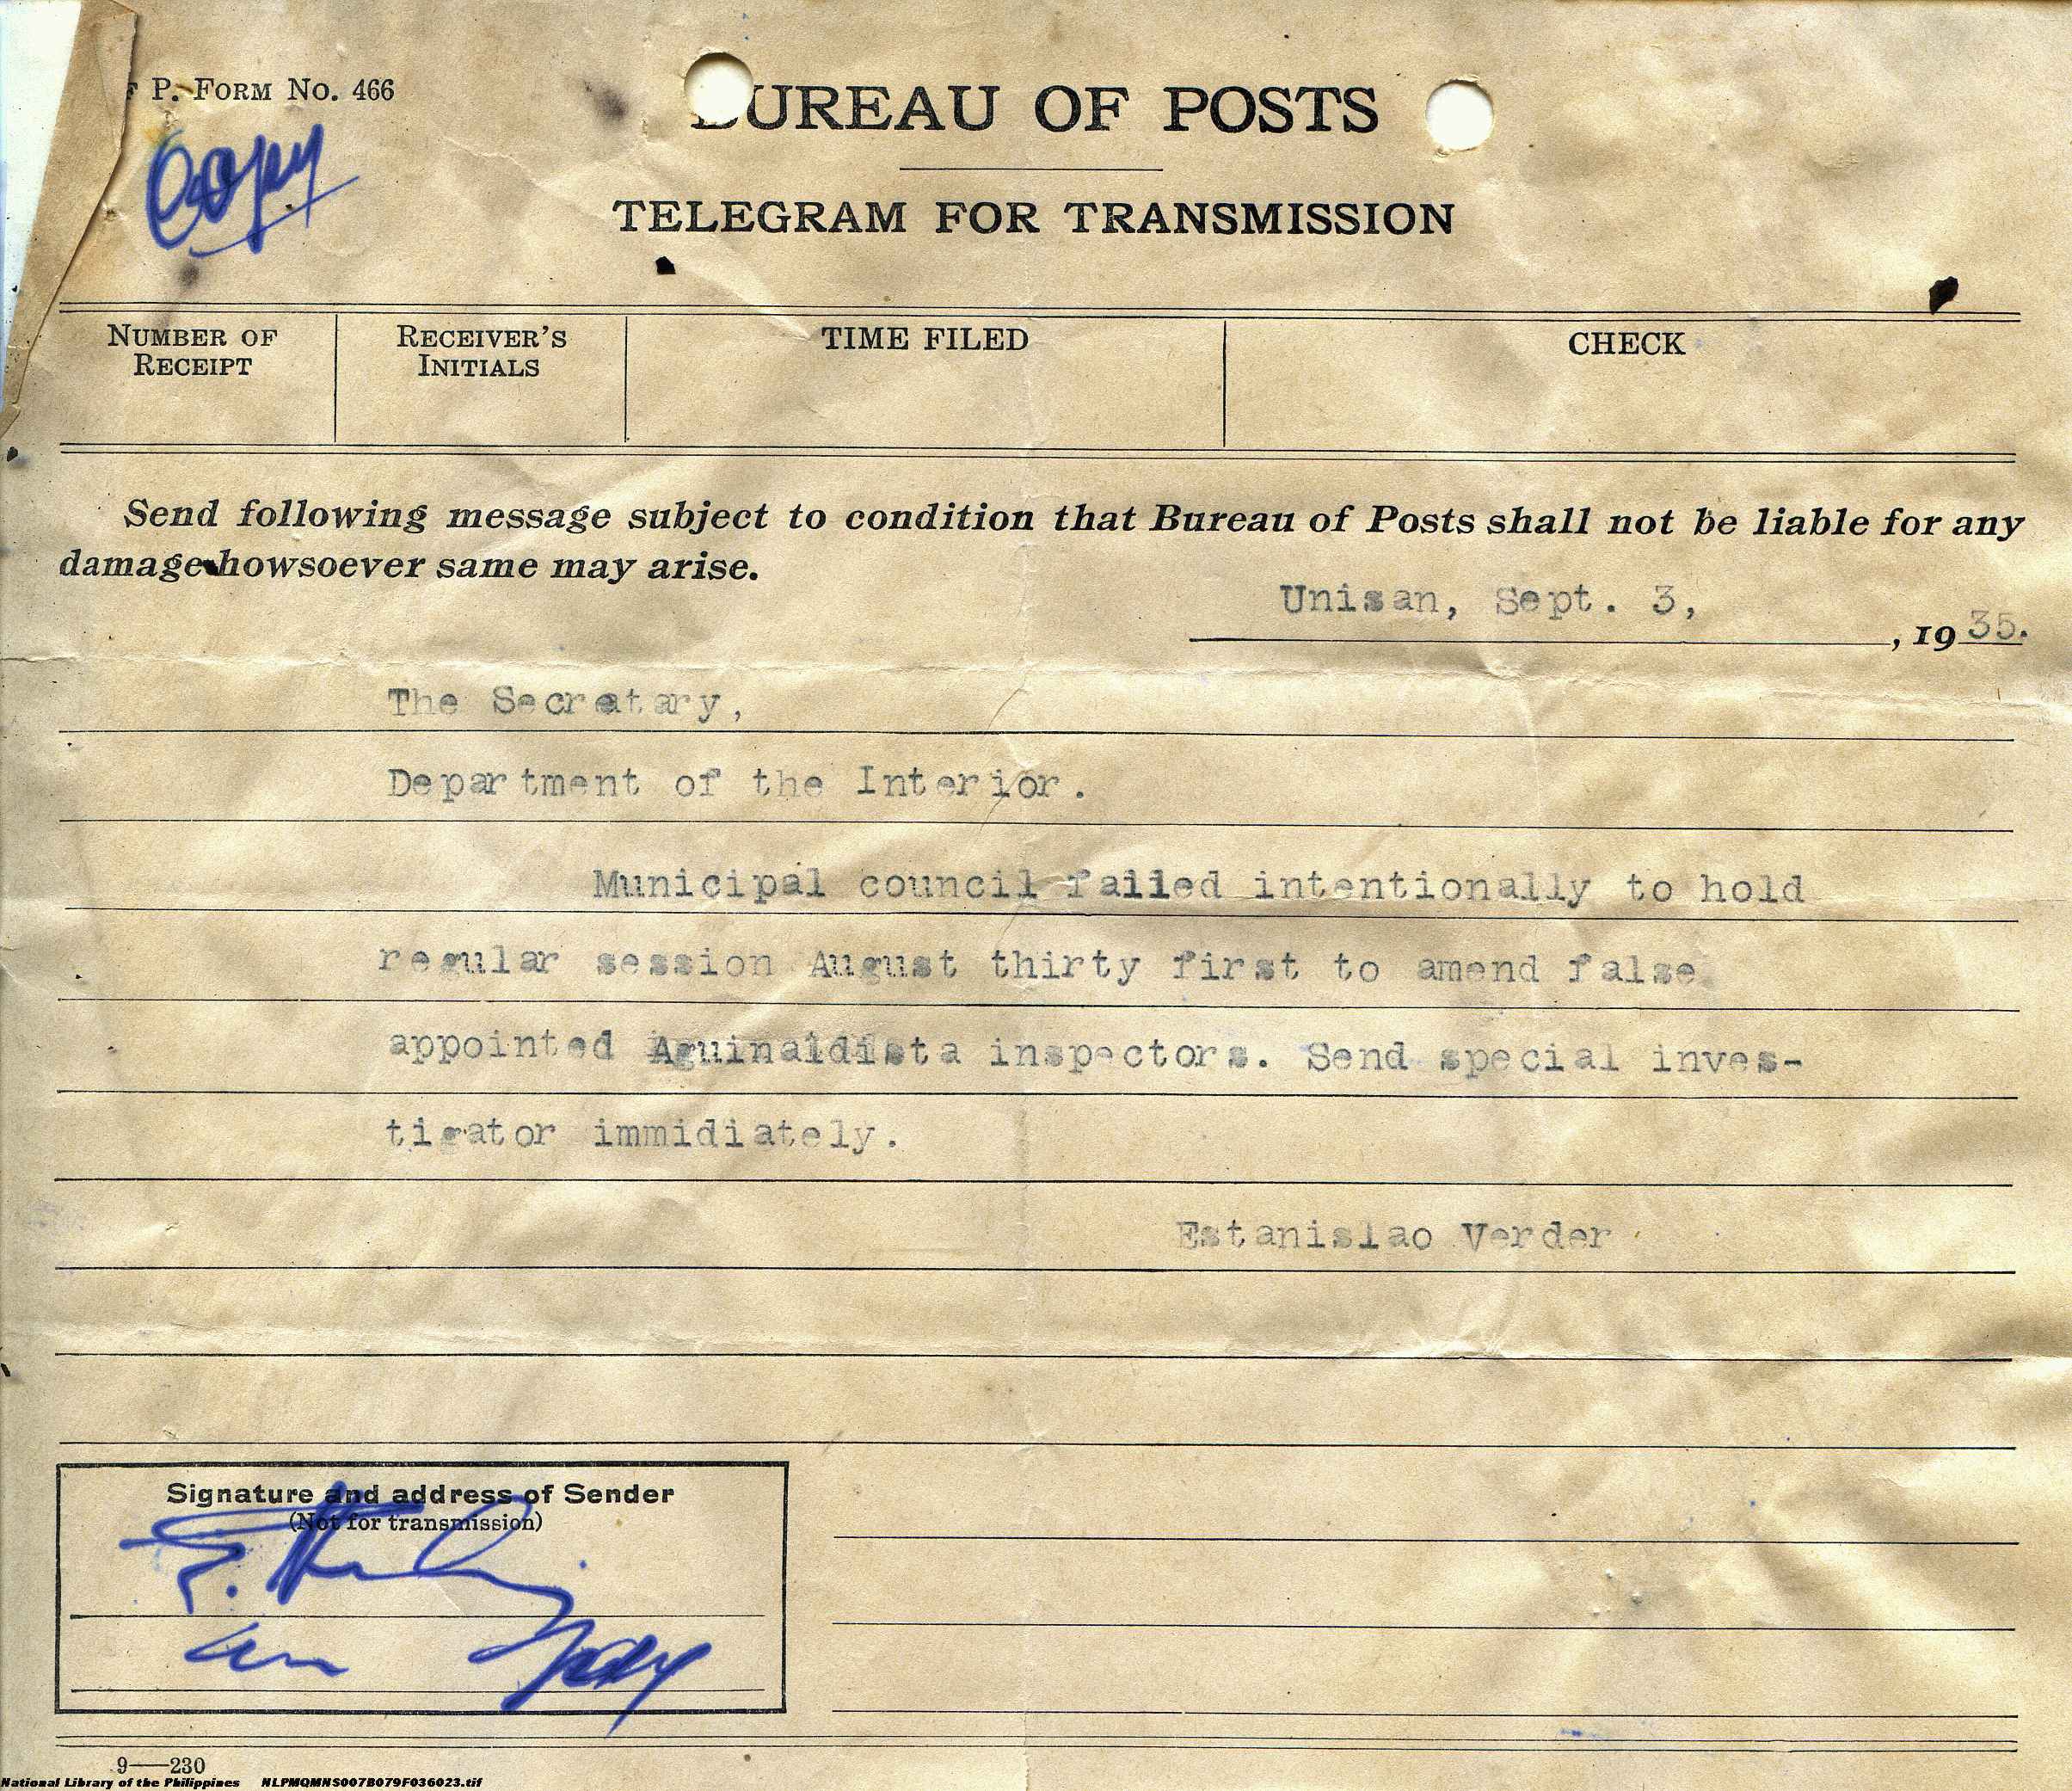 P. Form No. 466
Copy
BUREAU OF POSTS
TELEGRAM FOR TRANSMISSION
Number of Receipt
Receiver's Initials
TIME FILED
CHECK
Send following message subject to condition that Bureau of Posts shall not be liable for any
damage howsoever same may arise.
Unisan, Sept. 3,
, 1935.
The Secretary,
Department of the Interior.
Municipal council failed intentionally to hold
regular session August thirty first to amend false
appointed Aguinaldista inspectors. Send special inves-
tigator immidiately.
Estanislao Verder
Signature and address of Sender
(Not for transmission)
9—230
National Library of the Philippines NLPMQMNS007B079F036023.tif